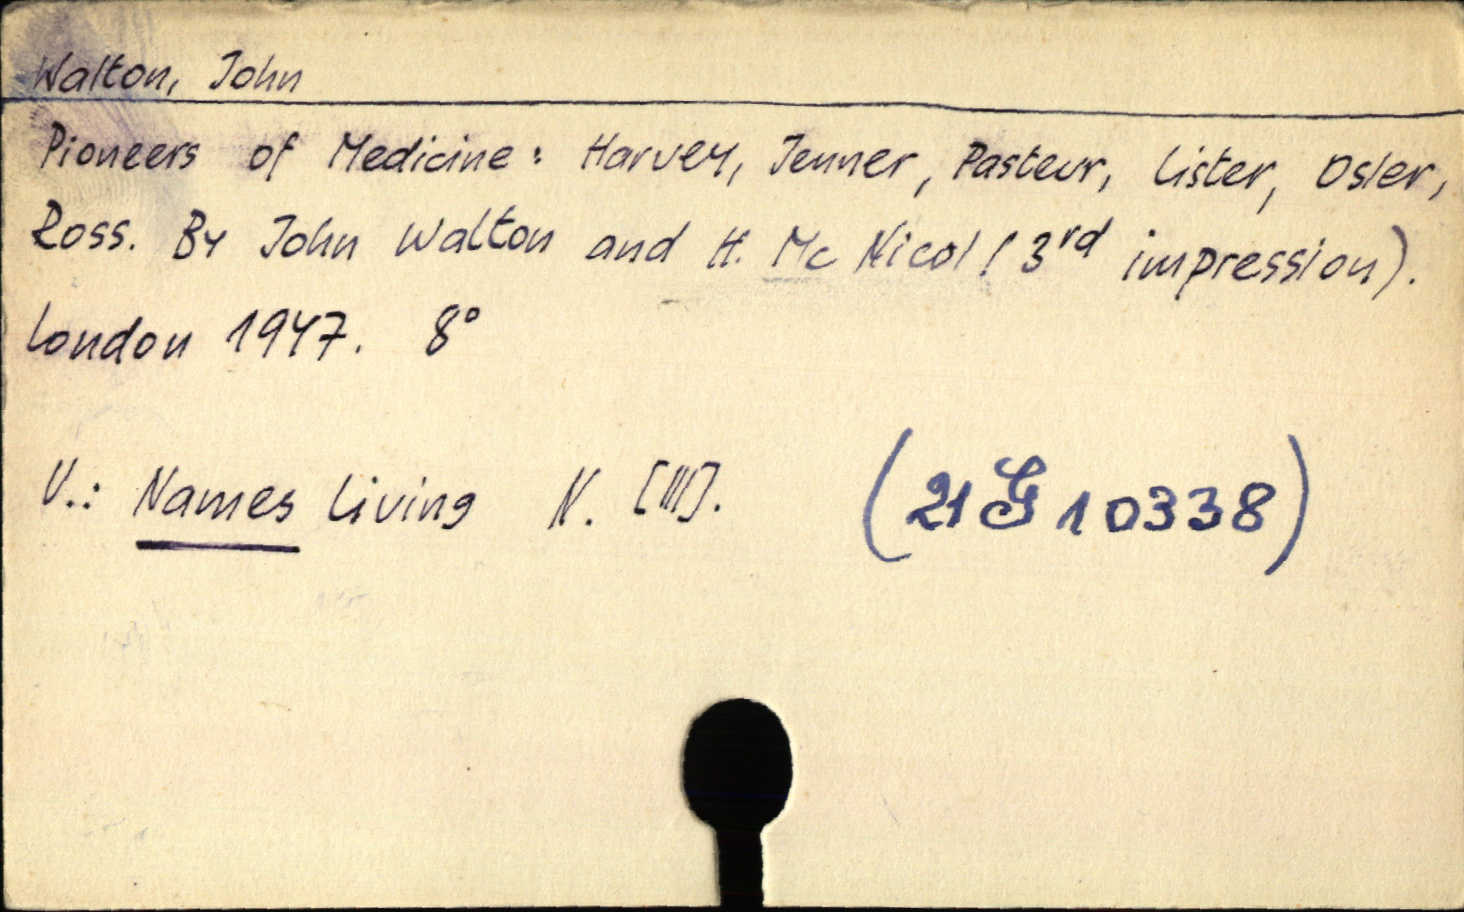 Walton, John
Pioneers of Medicine: Harvey, Jenner, Pasteur, Lister, Osler,
Ross. By John Walton and H. Mc Nicol (3rd impression).
London 1947. 8°
V.: Names Living N. [III]. (21 G 10338)